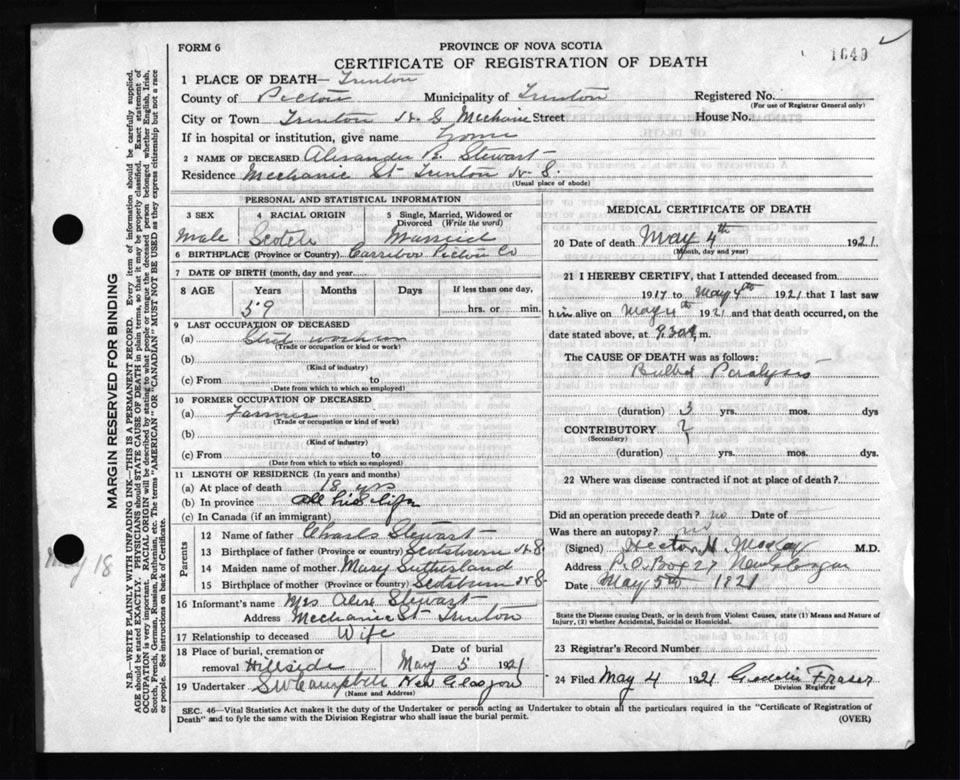 FORM 6
PROVINCE OF NOVA SCOTIA
CERTIFICATE OF REGISTRATION OF DEATH
1649
1 PLACE OF DEATH— Trenton
County of Pictou Municipality of Trenton Registered No.
(For use of Registrar General only)
City or Town Trenton N. S. Mechanic Street House No.
If in hospital or institution, give name Home
2 NAME OF DECEASED Alexander B. Stewart
Residence Mechanic St Trenton N. S.
(Usual place of abode)
PERSONAL AND STATISTICAL INFORMATION
3 SEX 4 RACIAL ORIGIN 5 Single, Married, Widowed or Divorced (Write the word)
Male Scotch Married
6 BIRTHPLACE (Province or Country) Carriboo Pictou Co
7 DATE OF BIRTH (month, day and year
8 AGE Years Months Days If less than one day,
59 hrs. or min.
9 LAST OCCUPATION OF DECEASED
(a) Steel
(Trade or occupation or kind or work)
(b)
(Kind of industry)
(c) From to
(Date from which to which so employed)
10 FORMER OCCUPATION OF DECEASED
(a) Farmer
(Trade or occupation or kind of work)
(b)
(Kind of industry)
(c) From to
(Date from which to which so employed)
11 LENGTH OF RESIDENCE (In years and months)
(a) At place of death 18 yrs
(b) In province all his life
(c) In Canada (if an immigrant)
Parents
12 Name of father Charls Stewart
13 Birthplace of father (Province or country) Scotsburn N S
14 Maiden name of mother Mary Sutherland
15 Birthplace of mother (Province or country) Scotsburn N S
16 Informant's name Mrs Alex Stewart
Address Mechanic St Trenton
17 Relationship to deceased Wife
18 Place of burial, cremation or removal Hillside
Date of burial
May 5 1921
19 Undertaker S W Campbell New Glasgow
(Name and Address)
MEDICAL CERTIFICATE OF DEATH
20 Date of death May 4th 1921
(Month, day and year)
21 I HEREBY CERTIFY, that I attended deceased from
1917 to May 4th 1921 that I last saw
him alive on May 4th 1921 and that death occurred, on the
date stated above, at 9.30 a, m.
The CAUSE OF DEATH was as follows:
Bulbar Paralysis
(duration) 3 yrs. mos. dys
CONTRIBUTORY ?
(Secondary)
(duration) yrs. mos. dys.
22 Where was disease contracted if not at place of death?
Did an operation precede death? no Date of
Was there an autopsy? no
(Signed) Hector H. M.D.
Address P.O. Box 27 New Glasgow
Date May 5th 1921
State the Disease causing Death, or in death from Violent Causes, state (1) Means and Nature of Injury, (2) whether Accidental, Suicidal or Homicidal.
23 Registrar's Record Number
24 Filed May 4 1921 Fraser
Division Registrar
SEC. 46—Vital Statistics Act makes it the duty of the Undertaker or person acting as Undertaker to obtain all the particulars required in the "Certificate of Registration of
Death" and to fyle the same with the Division Registrar who shall issue the burial permit.
(OVER)
MARGIN RESERVED FOR BINDING
May 18
N.B.—WRITE PLAINLY WITH UNFADING INK—THIS IS A PERMANENT RECORD. Every item of information should be carefully supplied.
AGE should be stated EXACTLY. PHYSICIANS should STATE CAUSE OF DEATH in plain terms, so that it may be properly classified. Exact statement of
OCCUPATION is very important. RACIAL ORIGIN will be described by stating to what people or tongue the deceased person belonged whether English, Irish,
Scotch, French, German, Russian, Ruthenian, etc. The terms "AMERICAN" OR "CANADIAN" MUST NOT BE USED as they express citizenship but not a race
or people. See instructions on back of Certificate.